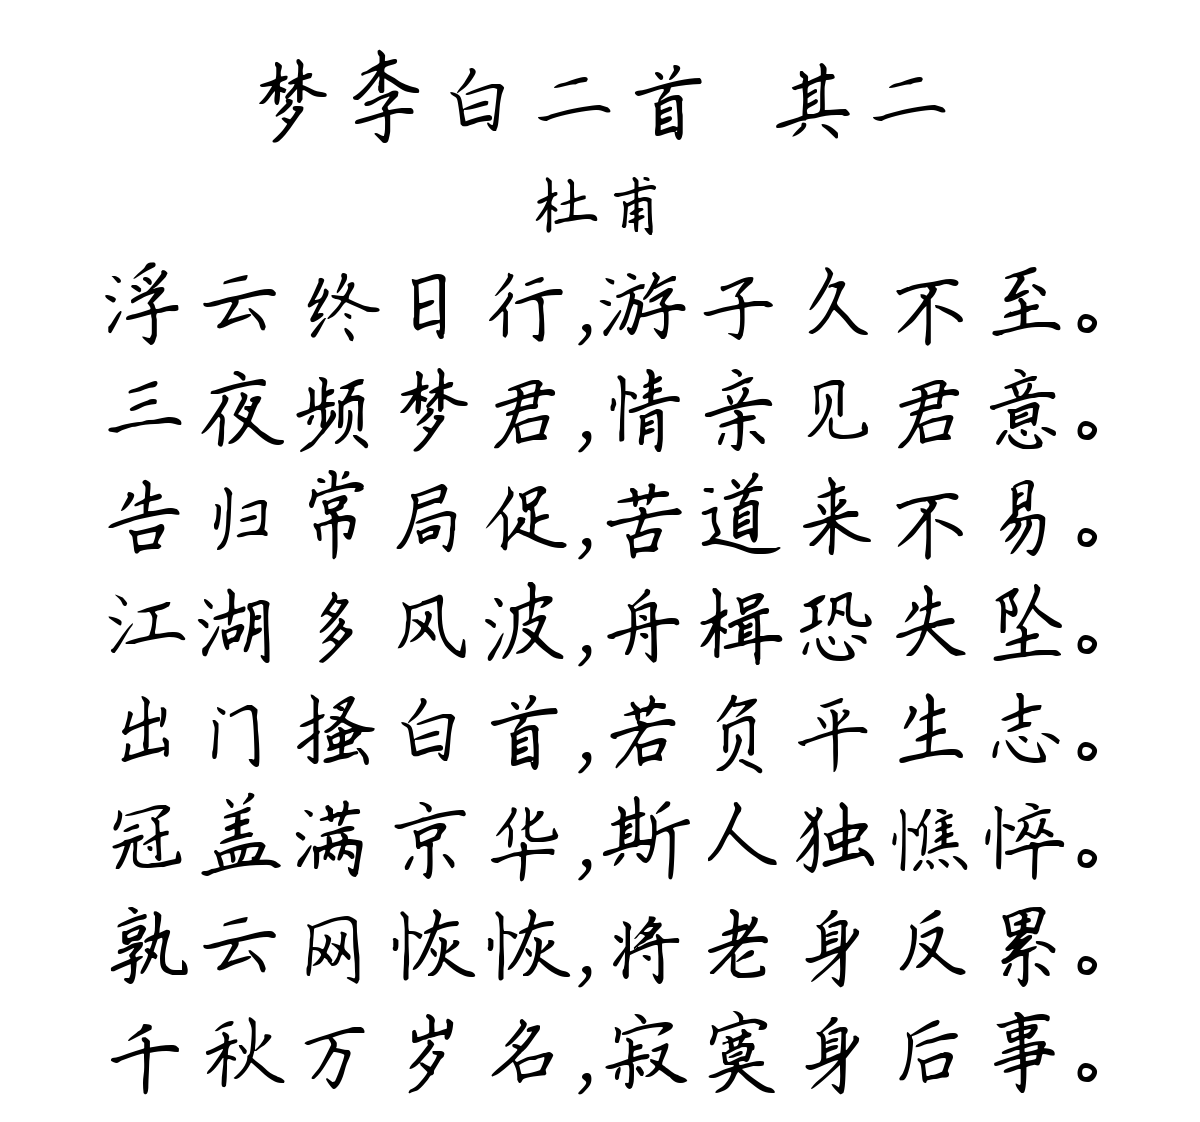 梦李白二首 其二
杜甫
浮云终日行,游子久不至。
三夜频梦君,情亲见君意。
告归常局促,苦道来不易。
江湖多风波,舟楫恐失坠。
出门搔白首,若负平生志。
冠盖满京华,斯人独憔悴。
孰云网恢恢,将老身反累。
千秋万岁名,寂寞身后事。